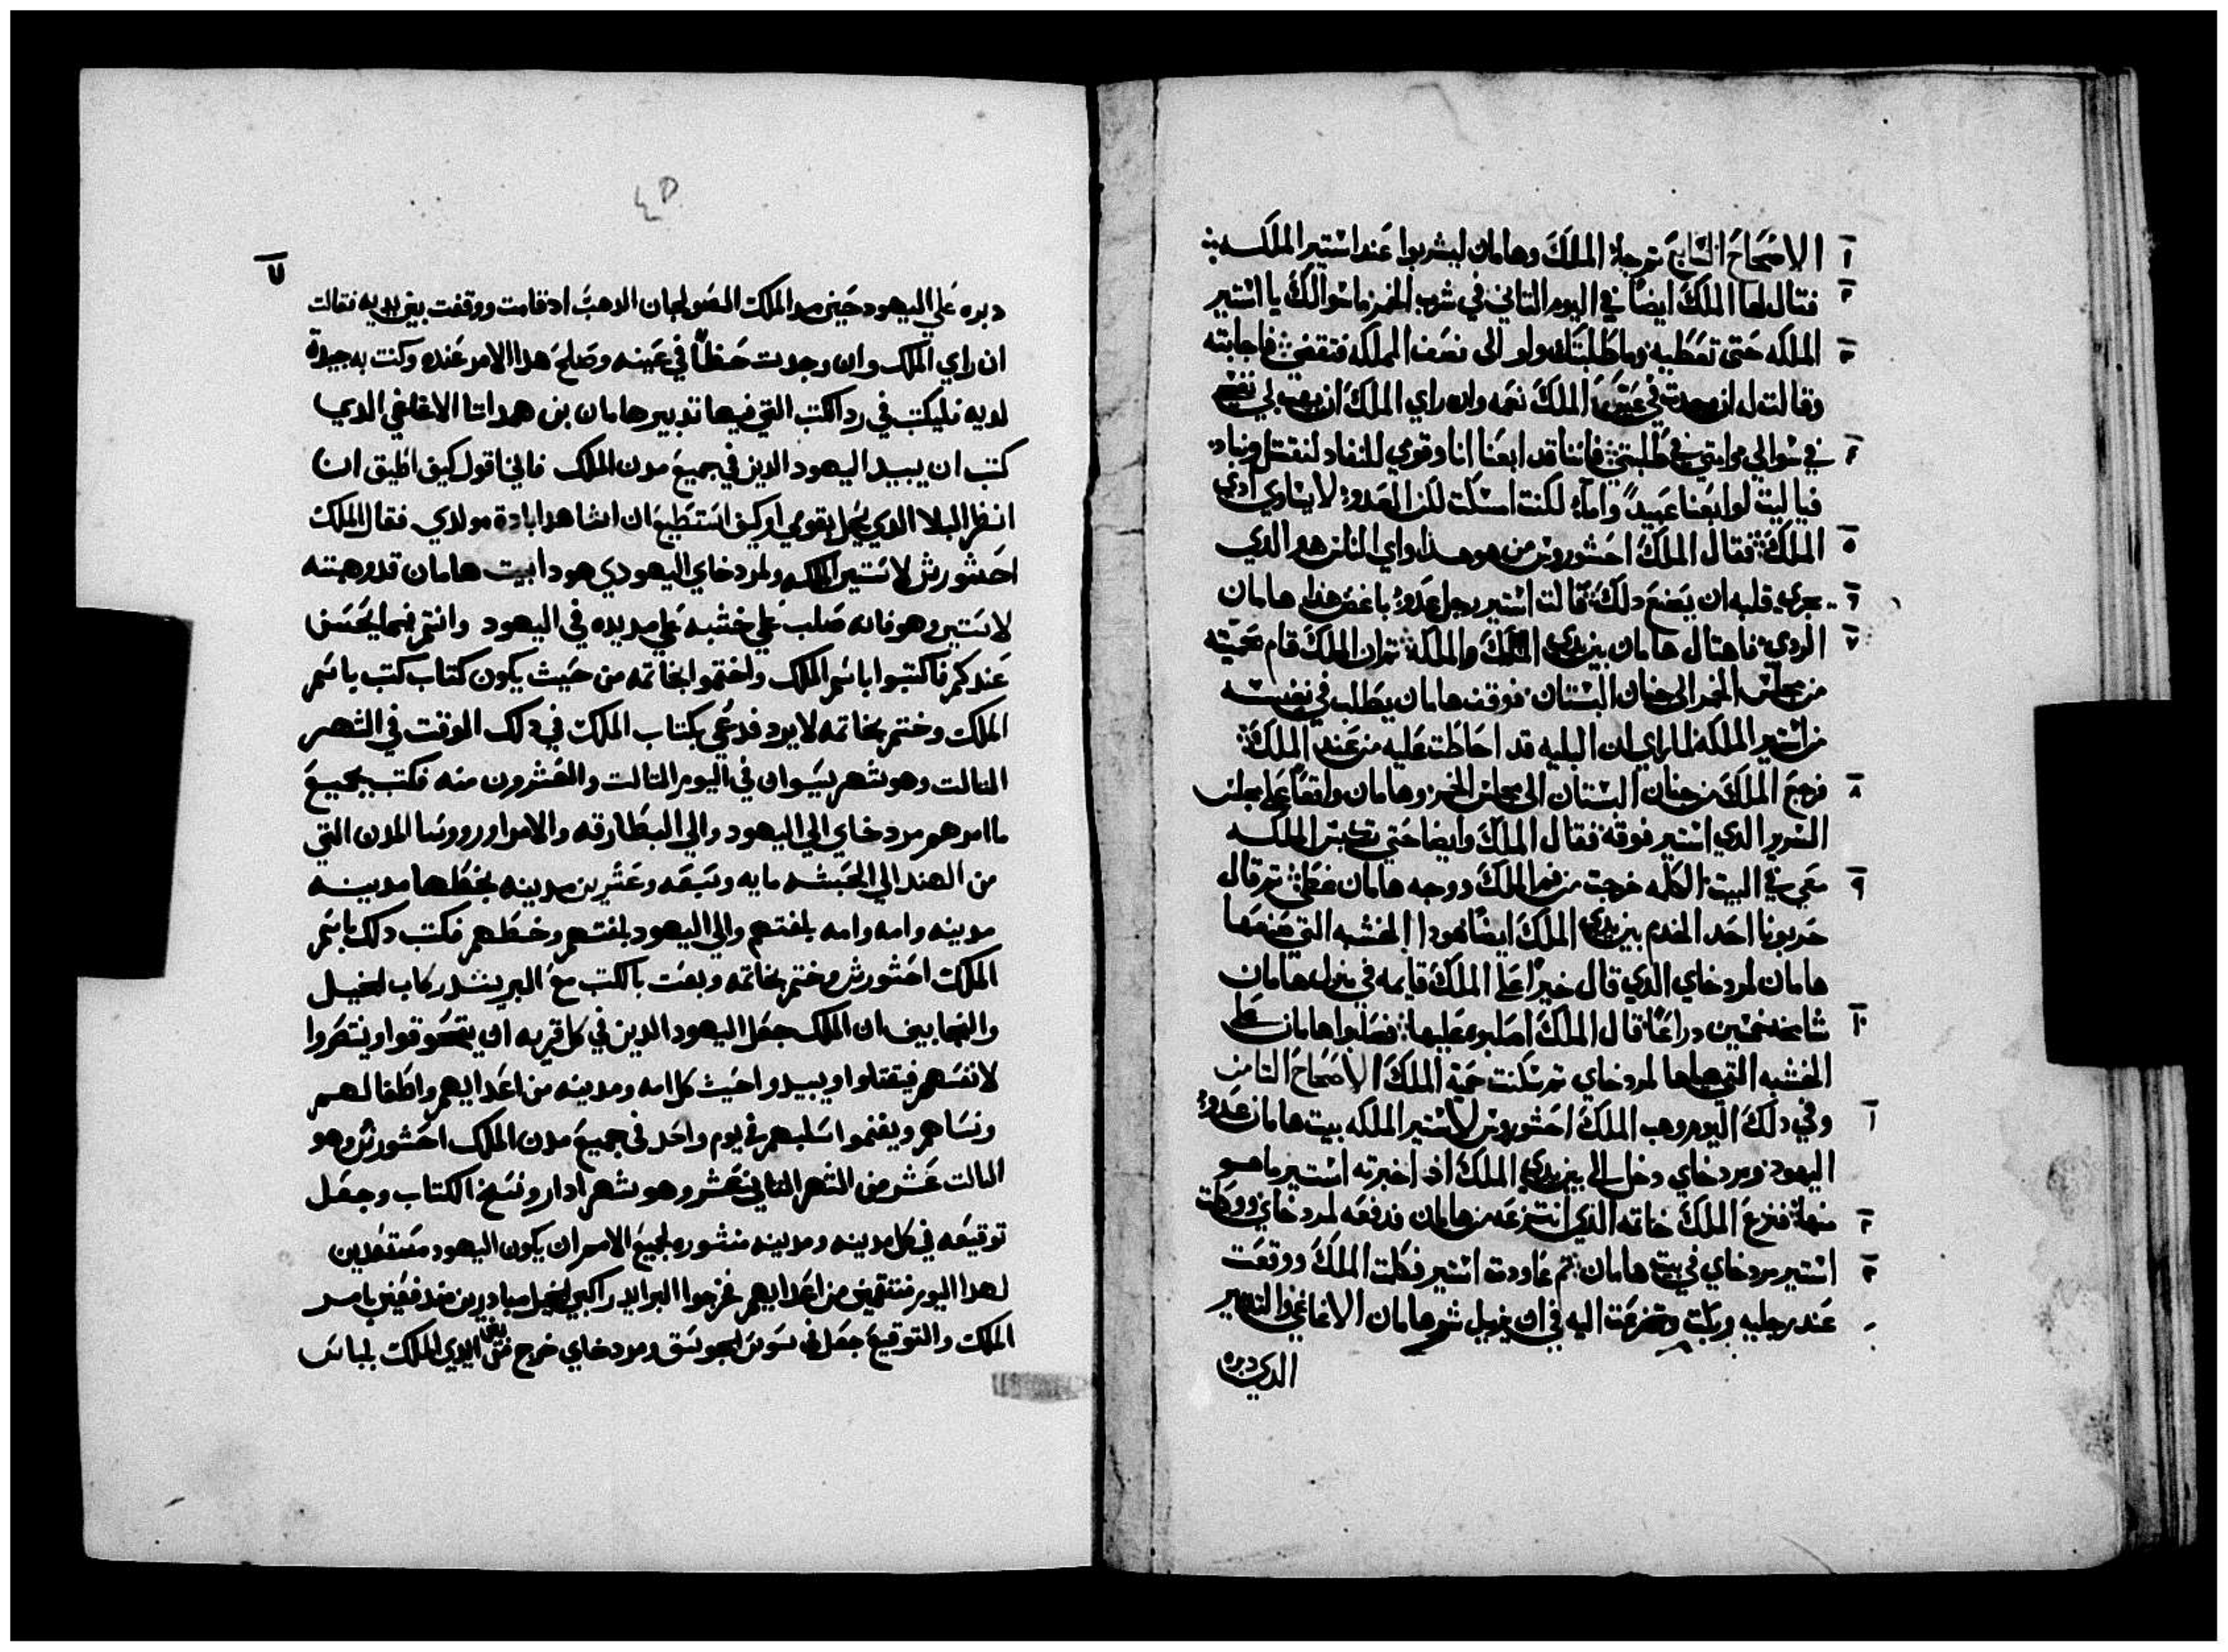 ١ الاصحاح السابع ثم جا الملك وهامان ليشربوا عند استير الملكه
٢ فقال لها الملك ايضا في اليوم التاني في شرب الخمر ما سوالك يا استير
٣ الملكه حتى تعطيه وما طلبتك ولو الى نصف المملكه فتقضى فاجابته
وقالت له ان وجدت في عين الملك نعمه وان راي الملك ان يهب لي نفسي
٤ في سوالي وامتي في طلبتي فاننا قد ابعنا انا وقومي للنفاد لنقتل ونباد
فيا ليت لو ابعنا عبيدا واماء لكنت امسكت لكن العدو لا يساوي ادي
٥ الملك فقال الملك احشوروش من هو هذا واي الناس هو الذي
٦ جرى قلبه ان يصنع دلك قالت استير رجل عدو باغض هذا هامان
٧ الردي فاهتال هامان بين يدي الملك والملكه ثم ان الملك قام بحميته
من مجلس الخمر الى جنان البستان فوقف هامان يطلب في نفسه
من استير الملكه لما راي ان البليه قد احاطت عليه من عند الملك
٨ فرجع الملك من جنان البستان الى مجلس الخمر وهامان واقعا على مجلس
السرير الدي استير فوقه فقال الملك وايضا حتى تكبس الملكه
٩ معي في البيت الكله خرجت من فم الملك ووجه هامان غطى ثم قال
حربونا احد الخدم بين يدي الملك ايضا هودا الخشبه التي صنعها
هامان لمردخاي الدي قال خيرا على الملك قايمه في منزل هامان
١٠ شامخه خمسين دراعا قال الملك اصلبوه عليها فصلبوا هامان على
الخشبه التي هياها لمردخاي ثم سكنت حمية الملك الاصحاح التامن
١ وفي دلك اليوم وهب الملك احشوروش لاستير الملكه بيت هامان عدو
اليهود ومردخاي دخل الى بين يدي الملك اذ اخبرته استير ما هو
٢ منها فنزع الملك خاتمه الذي انتزعه من هامان فدفعه لمردخاي ووكلت
٣ استير مردخاي في بيت هامان ثم عاودت استير فكلت الملك ووقعت
عند رجليه وبكت وتضرعت اليه في ان يزيل شر هامان الاغاغي والتدبير
الدي دبره
٧
دبره على اليهود حين مد الملك الصولجان الدهب اد قامت ووقفت بين يديه فقالت
ان راي الملك وان وجدت حظا في عينه وصلح هدا الامر عنده وكنت به جيدة
لديه فليكتب في رد الكتب التي فيها تدبير هامان بن همداتا الاغاغي الدي
كتب ان يبيد اليهود الدين في جميع مدن الملك فاني اقول كيف اطيق ان
انظر البلا الدي يحل بقومي او كيف استطيع ان اشاهد ابادة مولدي فقال الملك
احشورش لاستير الملكه ولمردخاي اليهودي هودا بيت هامان قد وهبته
لاستير وهو فانه صلب على خشبه على مد يده في اليهود وانتم فيما يحسن
عندكم فاكتبوا باسم الملك واختموا بخاتمه من حيث يكون كتاب كتب باسم
الملك وختم بخاتمه لا يرد فدعي بكتاب الملك في دلك الوقت في الشهر
التالت وهو شهر سيوان في اليوم التالت والعشرون منه فكتب بجميع
ما امرهم مردخاي الي اليهود والي البطارقه والامرا وروسا المدن التي
من الهند الي الحبشه مايه وسبعه وعشرين مدينه بخطها مدينه
مدينه وامه وامه بلغتهم والي اليهود بلغتهم وخطهم فكتب دلك باسم
الملك احشورش وختم بخاتمه وبعت بالكتب مع البريد ركاب الخيل
والنجايب ان الملك جعل اليهود الدين في كل قريه ان يتجوقوا وينتصروا
لانفسهم فيقتلوا ويبيدوا حيث كل امه ومدينه من اعدايهم واطفالهم
ونساهم ويغنموا سلبهم في يوم واحد في جميع مدن الملك احشورش وهو
التالت عشر من الشهر التاني عشر وهو شهر ادار ونسخ الكتاب وجعل
توقيعه في كل مدينه ومدينه منشوره لجميع الامم ان يكون اليهود مستعدين
لهدا اليوم منتقمين من اعدايهم فخرجوا البرايد راكبي الخيل مبادرين مندفعين بامر
الملك والتوقيع جعل في سوس الجوسق ومردخاي خرج من بين ايدي الملك بلباس